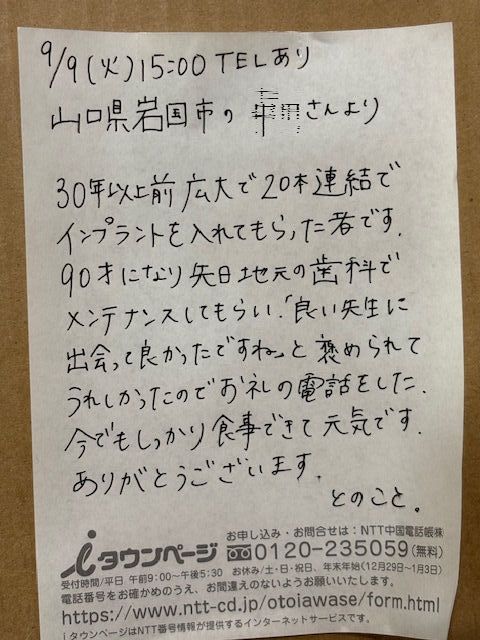 9/9(火)15:00 TELあり
山口県岩国市の さんより
30年以上前 広大で 20本連結で
インプラントを入れてもらった者です.
90才になり 先日地元の歯科で
メンテナンスしてもらい.「良い先生に
出会って良かったですね」と褒められて
うれしかったのでお礼の電話をした.
今でもしっかり食事できて元気です.
ありがとうございます.
とのこと.
iタウンページ
お申し込み・お問合せは:NTT中国電話帳㈱
0120-235059(無料)
受付時間/平日 午前9:00〜午後5:30 お休み/土・日・祝日、年末年始(12月29日〜1月3日)
電話番号をお確かめのうえ、お間違えのないようお願いいたします。
https://www.ntt-cd.jp/otoiawase/form.html
iタウンページはNTT番号情報が提供するインターネットサービスです。